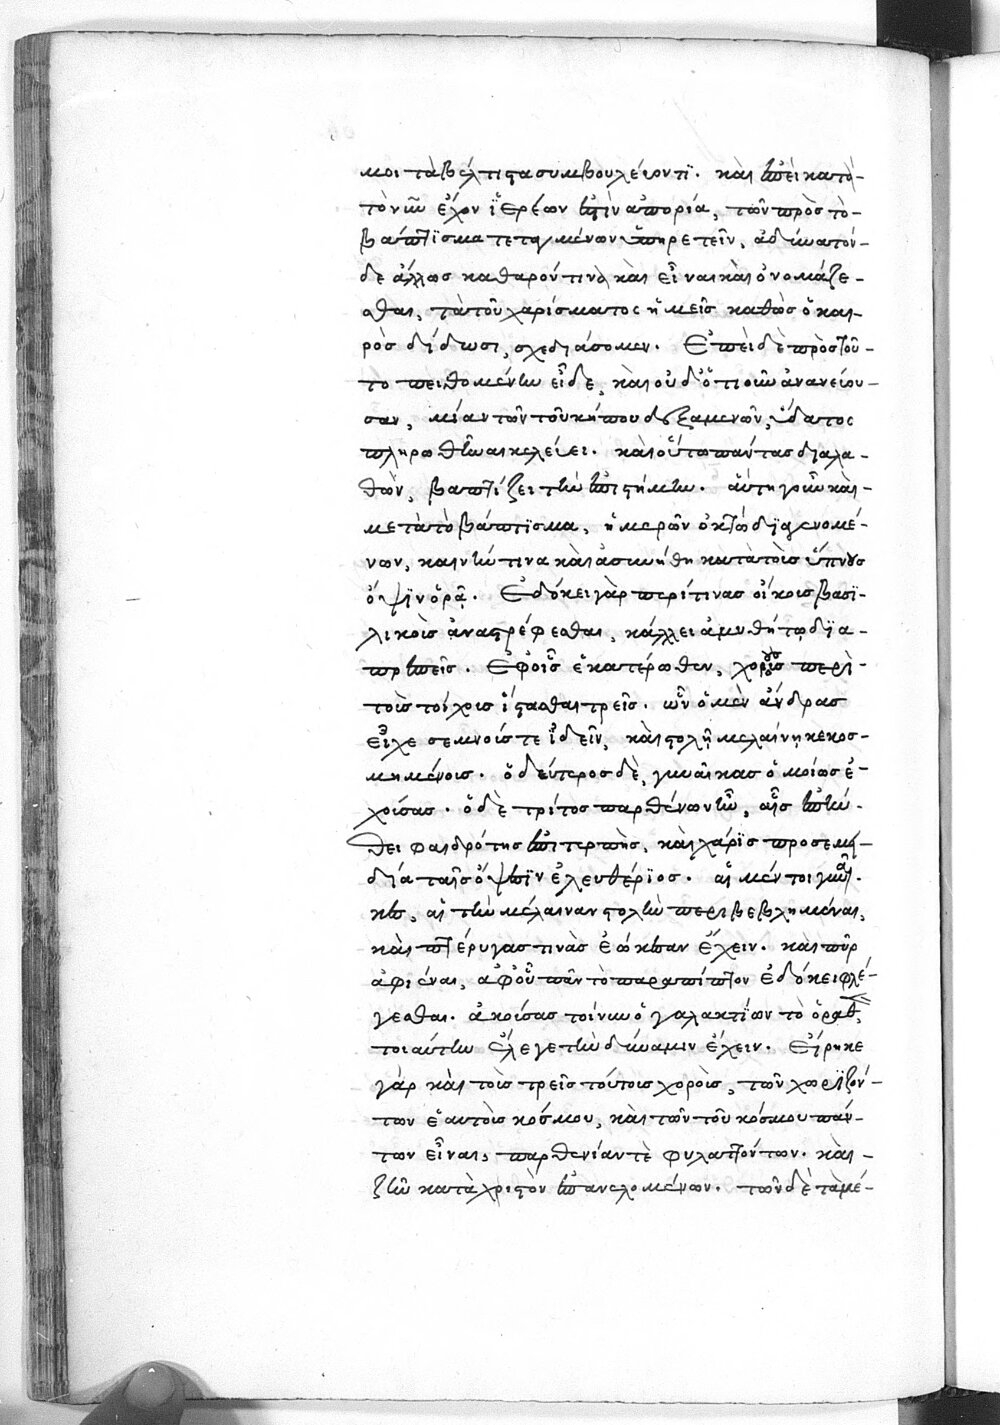 μοι τὰ βέλτιστα συμβουλεύοντι. καὶ ἐπεὶ κατὰ
τὸν νῦν ἔχον ἱερέων ἐστὶν ἀπορία, τῶν πρὸς τὸ
βάπτισμα τεταγμένων ὑπηρετεῖν, ἀδύνατον
δὲ ἄλλως καθαρόν τινα καὶ εἶναι καὶ ὀνομάζε-
σθαι, τὰ τοῦ χαρίσματος ἡμεῖς καθὼς ὁ και-
ρὸς δίδωσι, σχεδιάσομεν. Ἐπεὶ δὲ πρὸς τοῦ-
το πειθομένην εἶδε, καὶ οὐδ' ὅτι οὖν ἀνανεύου-
σαν, μίαν τῶν τοῦ κήπου δεξαμενῶν, ὕδατος
πληρωθῆναι κελεύει. καὶ οὕτω πάντας διαλα-
θὼν, βαπτίζει τὴν ἐπιστήμην. αὕτη γοῦν καὶ
μετὰ τὸ βάπτισμα, ἡμερῶν ὀκτὼ διαγενομέ-
νων, καινήν τινα καὶ ἀσυνήθη κατὰ τοὺς ὕπνους
ὄψιν ὁρᾷ. Ἐδόκει γὰρ περί τινας οἴκους βασι-
λικοὺς ἀναστρέφεσθαι, κάλλει ἀμυθήτῳ δια-
πρεπεῖς. Ἐφ' οἷς ἑκατέρωθεν, χοροὺς περὶ
τοὺς τοίχους ἵστασθαι τρεῖς. ὧν ὁ μὲν ἄνδρας
εἶχε σεμνούς τε ἰδεῖν, καὶ στολῇ μελαίνῃ κεκοσ-
μημένους. ὁ δεύτερος δὲ, γυναῖκας ὁμοίως ἐ-
χούσας. ὁ δὲ τρίτος παρθένων ἦν, αἷς ἐπήν-
θει φαιδρότης ἐπιτερπὴς, καὶ χάρις προσεμει-
δία ταῖς ὄψεσιν ἐλευθέριος. αἱ μέντοι γυναῖ-
κες, αἱ τὴν μέλαιναν στολὴν περιβεβλημέναι,
καὶ πτέρυγάς τινας ἐῴκεσαν ἔχειν. καὶ πῦρ
ἀφιέναι, ἀφ' οὗ πᾶν τὸ παραπίπτον ἐδόκει φλέ-
γεσθαι. ἀκούσας τοίνυν ὁ γαλακτίων τὸ ὁραθὲν,
τοιαύτην ἔλεγε τὴν δύναμιν ἔχειν. Εἴρηκε
γὰρ καὶ τοὺς τρεῖς τούτους χοροὺς, τῶν χωριζόν-
των ἑαυτοὺς κόσμου, καὶ τῶν τοῦ κόσμου πάν-
των εἶναι, παρθενίαν τε φυλαττόντων. καὶ
ζῆν κατὰ χριστὸν ἐπανελομένων. τῶν δὲ τὰ μέ-